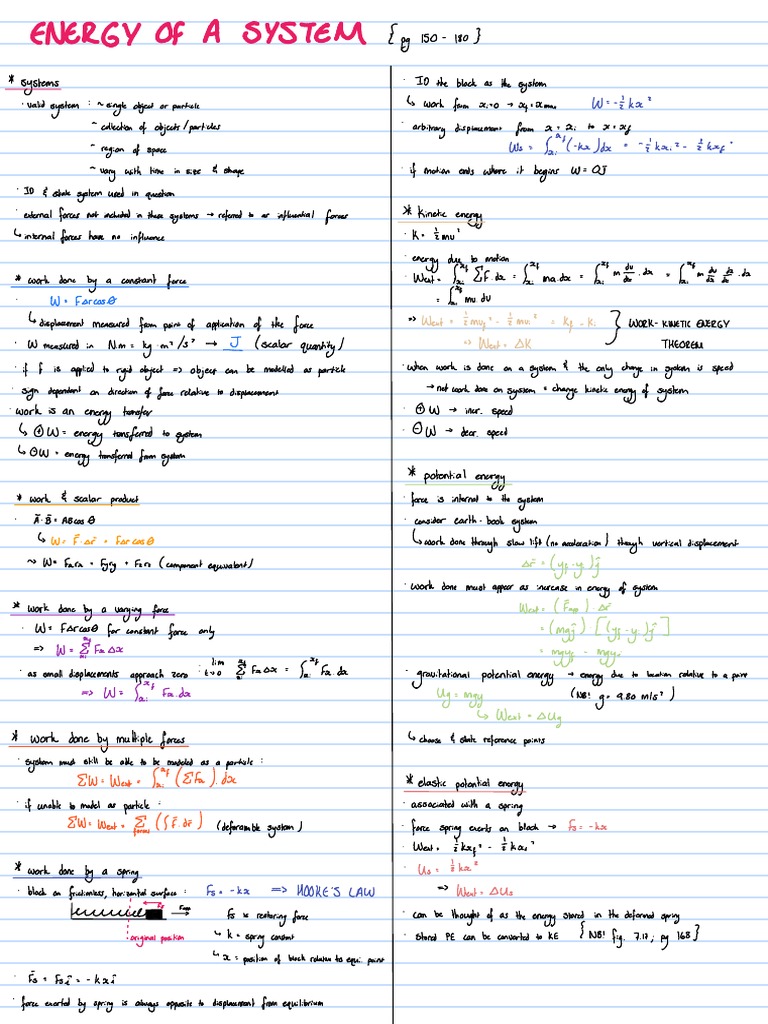 ENERGY OF A SYSTEM { pg 150 - 180 }
* systems
· valid system : ~ single object or particle
~ collection of objects / particles
~ region of space
~ vary with time in size & shape
· ID & state system used in question
· external forces not included in these systems → referred to as influential forces
↳ internal forces have no influence
* work done by a constant force
· W = FΔrcosθ
↳ displacement measured from point of application of the force
· W measured in Nm = kg·m²/s² → J (scalar quantity)
· if F is applied to rigid object => object can be modelled as particle
· sign dependant on direction of force relative to displacement
· work is an energy transfer
↳ ⊕W = energy transferred to system
↳ ⊖W = energy transferred from system
* work & scalar product
· A̅·B̅ = ABcosθ
↳ W = F̅·Δr̅ = FΔrcosθ
~> W = Fxrx = Fyry + Fzrz (component equivalent)
* work done by a varying force
· W = FΔrcosθ for constant force only
=> W = Σ FxΔx
· as small displacements approach zero : lim t→0 Σ FxΔx = ∫ Fx.dx
=> W = ∫ Fx.dx
* work done by multiple forces
· system must still be able to be modeled as a particle :
ΣW = Wext = ∫ (ΣFx).dx
· if unable to model as particle :
ΣW = Wext = Σ forces (∫F̅.dr̅) (deformable system)
* work done by a spring
· block on frictionless, horizontal surface : Fs = -kx => HOOKE'S LAW
Fs Fapp
Fs is restoring force
original position
↳ k = spring constant
↳ x = position of block relative to equi. point
· F̅s = Fsî = -kxî
· force exerted by spring is always opposite to displacement from equilibrium
· ID the block as the system
↳ work from xi=0 → xf=xmax W = -½kx²
· arbitrary displacement from x = xi to x = xf
Ws = ∫ (-kx)dx = -½kxi² - ½kxf²
· if motion ends where it begins W = 0J
* kinetic energy
· K = ½mv²
· energy due to motion
· Wext = ∫ ΣF.dx = ∫ ma.dx = ∫ m dv/dt .dx = ∫ m dv/dx dx/dt .dx
= ∫ mv.dv
=> Wext = ½mvf² - ½mvi² = Kf - Ki } WORK-KINETIC ENERGY
=> Wext = ΔK THEOREM
· when work is done on a system & the only change in system is speed
→ net work done on system = change kinetic energy of system
· ⊕W → incr. speed
· ⊖W → decr. speed
* potential energy
· force is internal to the system
· consider earth-book system
↳ work done through slow lift (no acceleration) though vertical displacement
Δr̅ = (yf - yi)ĵ
· work done must appear as increase in energy of system
Wext = (F̅app)·Δr̅
= (mgĵ)[(yf - yi)ĵ]
= mgyf - mgyi
· gravitational potential energy → energy due to location relative to a point
Ug = mgy (NB! g = 9.80 m/s²)
↳ Wext = ΔUg
↳ choose & state reference points
* elastic potential energy
· associated with a spring
· force spring exerts on block → Fs = -kx
· Wext = ½kxf² - ½kxi²
· Us = ½kx²
=> Wext = ΔUs
· can be thought of as the energy stored in the deformed spring
· stored PE can be converted to KE { NB! fig. 7.17; pg 168 }